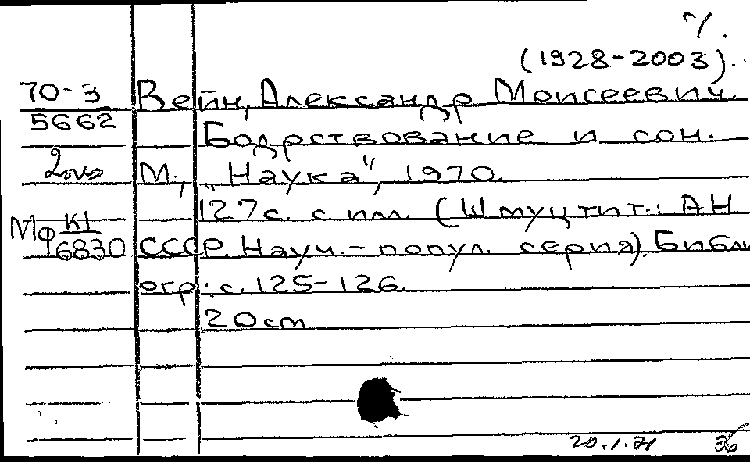 (1928-2003).
70-3 Вейн, Александр Моисеевич.
5662 Бодрствование и сон.
М., „Наука", 1970.
127с. с илл. (Шмуцтит.: АН
Мф К1 6830 СССР. Науч.-попул. серия). Библи
огр.: с. 125-126.
20 cm
20.1.71